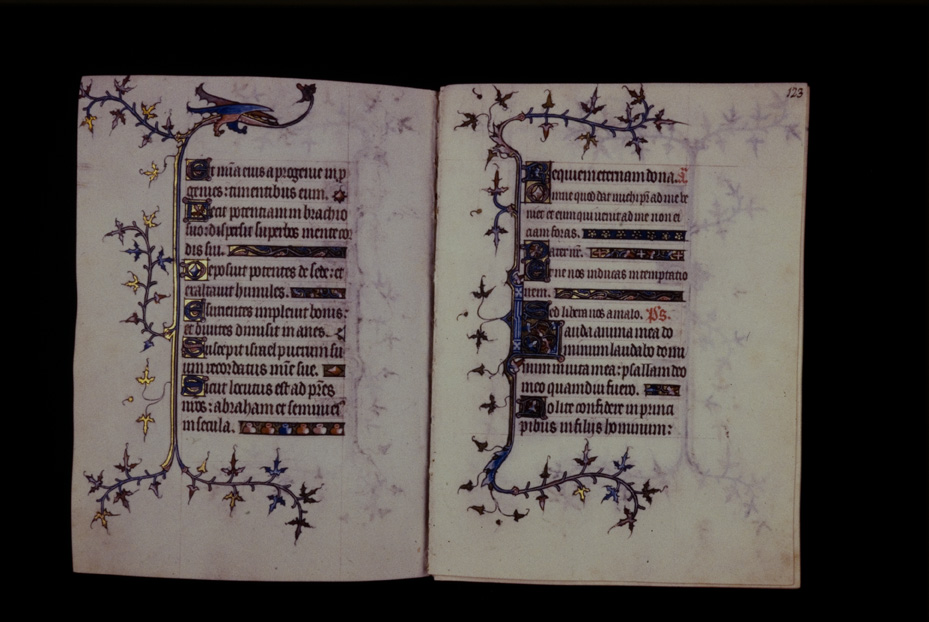 Et mīa eius a progenie in p
genies : timentibus eum.
Fecit potentiam in brachio
suo : dispersit superbos mente cor
dis sui.
Deposuit potentes de sede : et
exaltauit humiles.
Esurientes impleuit bonis :
et diuites dimisit inanes.
Suscepit israel puerum su
um recordatus mīe sue.
Sicut locutus est ad pr̄es
nr̄os : abraham et semini ei
in secula.
123
Requiem eternam dona. A
Omne quod dat michi pr̄ ad me ve
niet et eum qui uenit ad me non ei
ciam foras.
Pater nr̄.
Et ne nos inducas in temptatio
nem.
Sed libera nos a malo. Ps.
Lauda anima mea do
minum laudabo domi
num in uita mea : psallam deo
meo quamdiu fuero.
Nolite confidere in princi
pibus in filijs hominum :